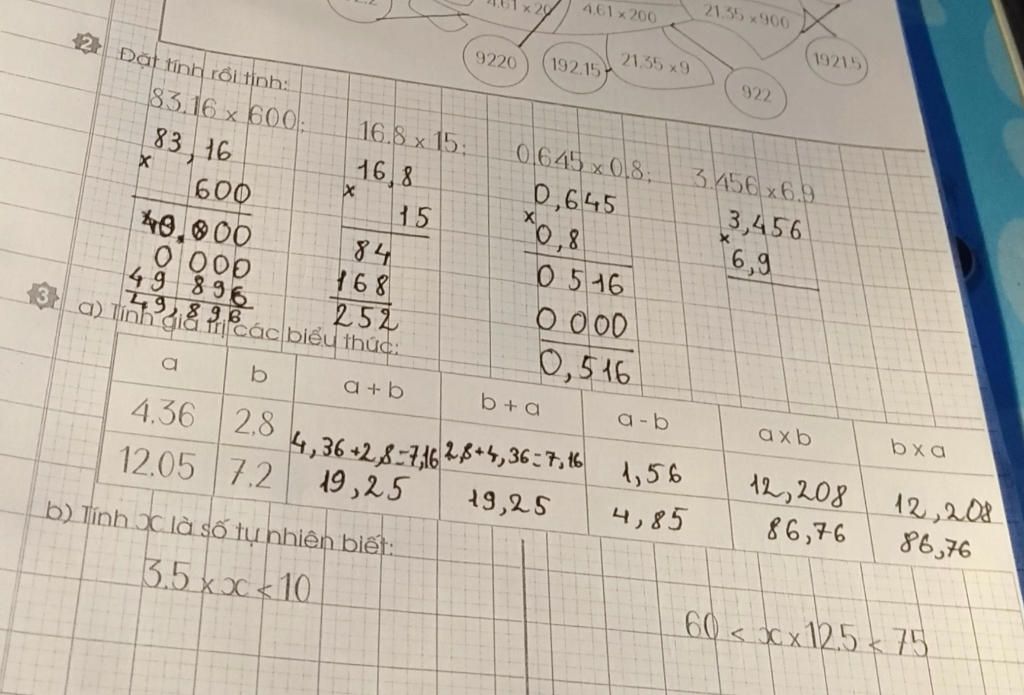 4.61 x 20 4.61 x 200 21.35 x 900
9220 192.15 21.35 x 9 922 19215
2 Đặt tính rồi tính:
83.16 x 600; 16.8 x 15; 0.645 x 0.8; 3.456 x 6.9
83,16 16,8 0,645 3,456
x x x x
600 15 0,8 6,9
84 0 516
0 000 168 0 000
49 896 252 0,516
49,896
3 a) Tính giá trị các biểu thức:
a b a + b b + a a - b a x b b x a
4.36 2.8 4,36+2,8=7,16 2,8+4,36=7,16 1,56 12,208 12,208
12.05 7.2 19,25 19,25 4,85 86,76 86,76
b) Tính x là số tự nhiên biết:
3.5 x x < 10 60 < x x 12.5 < 75